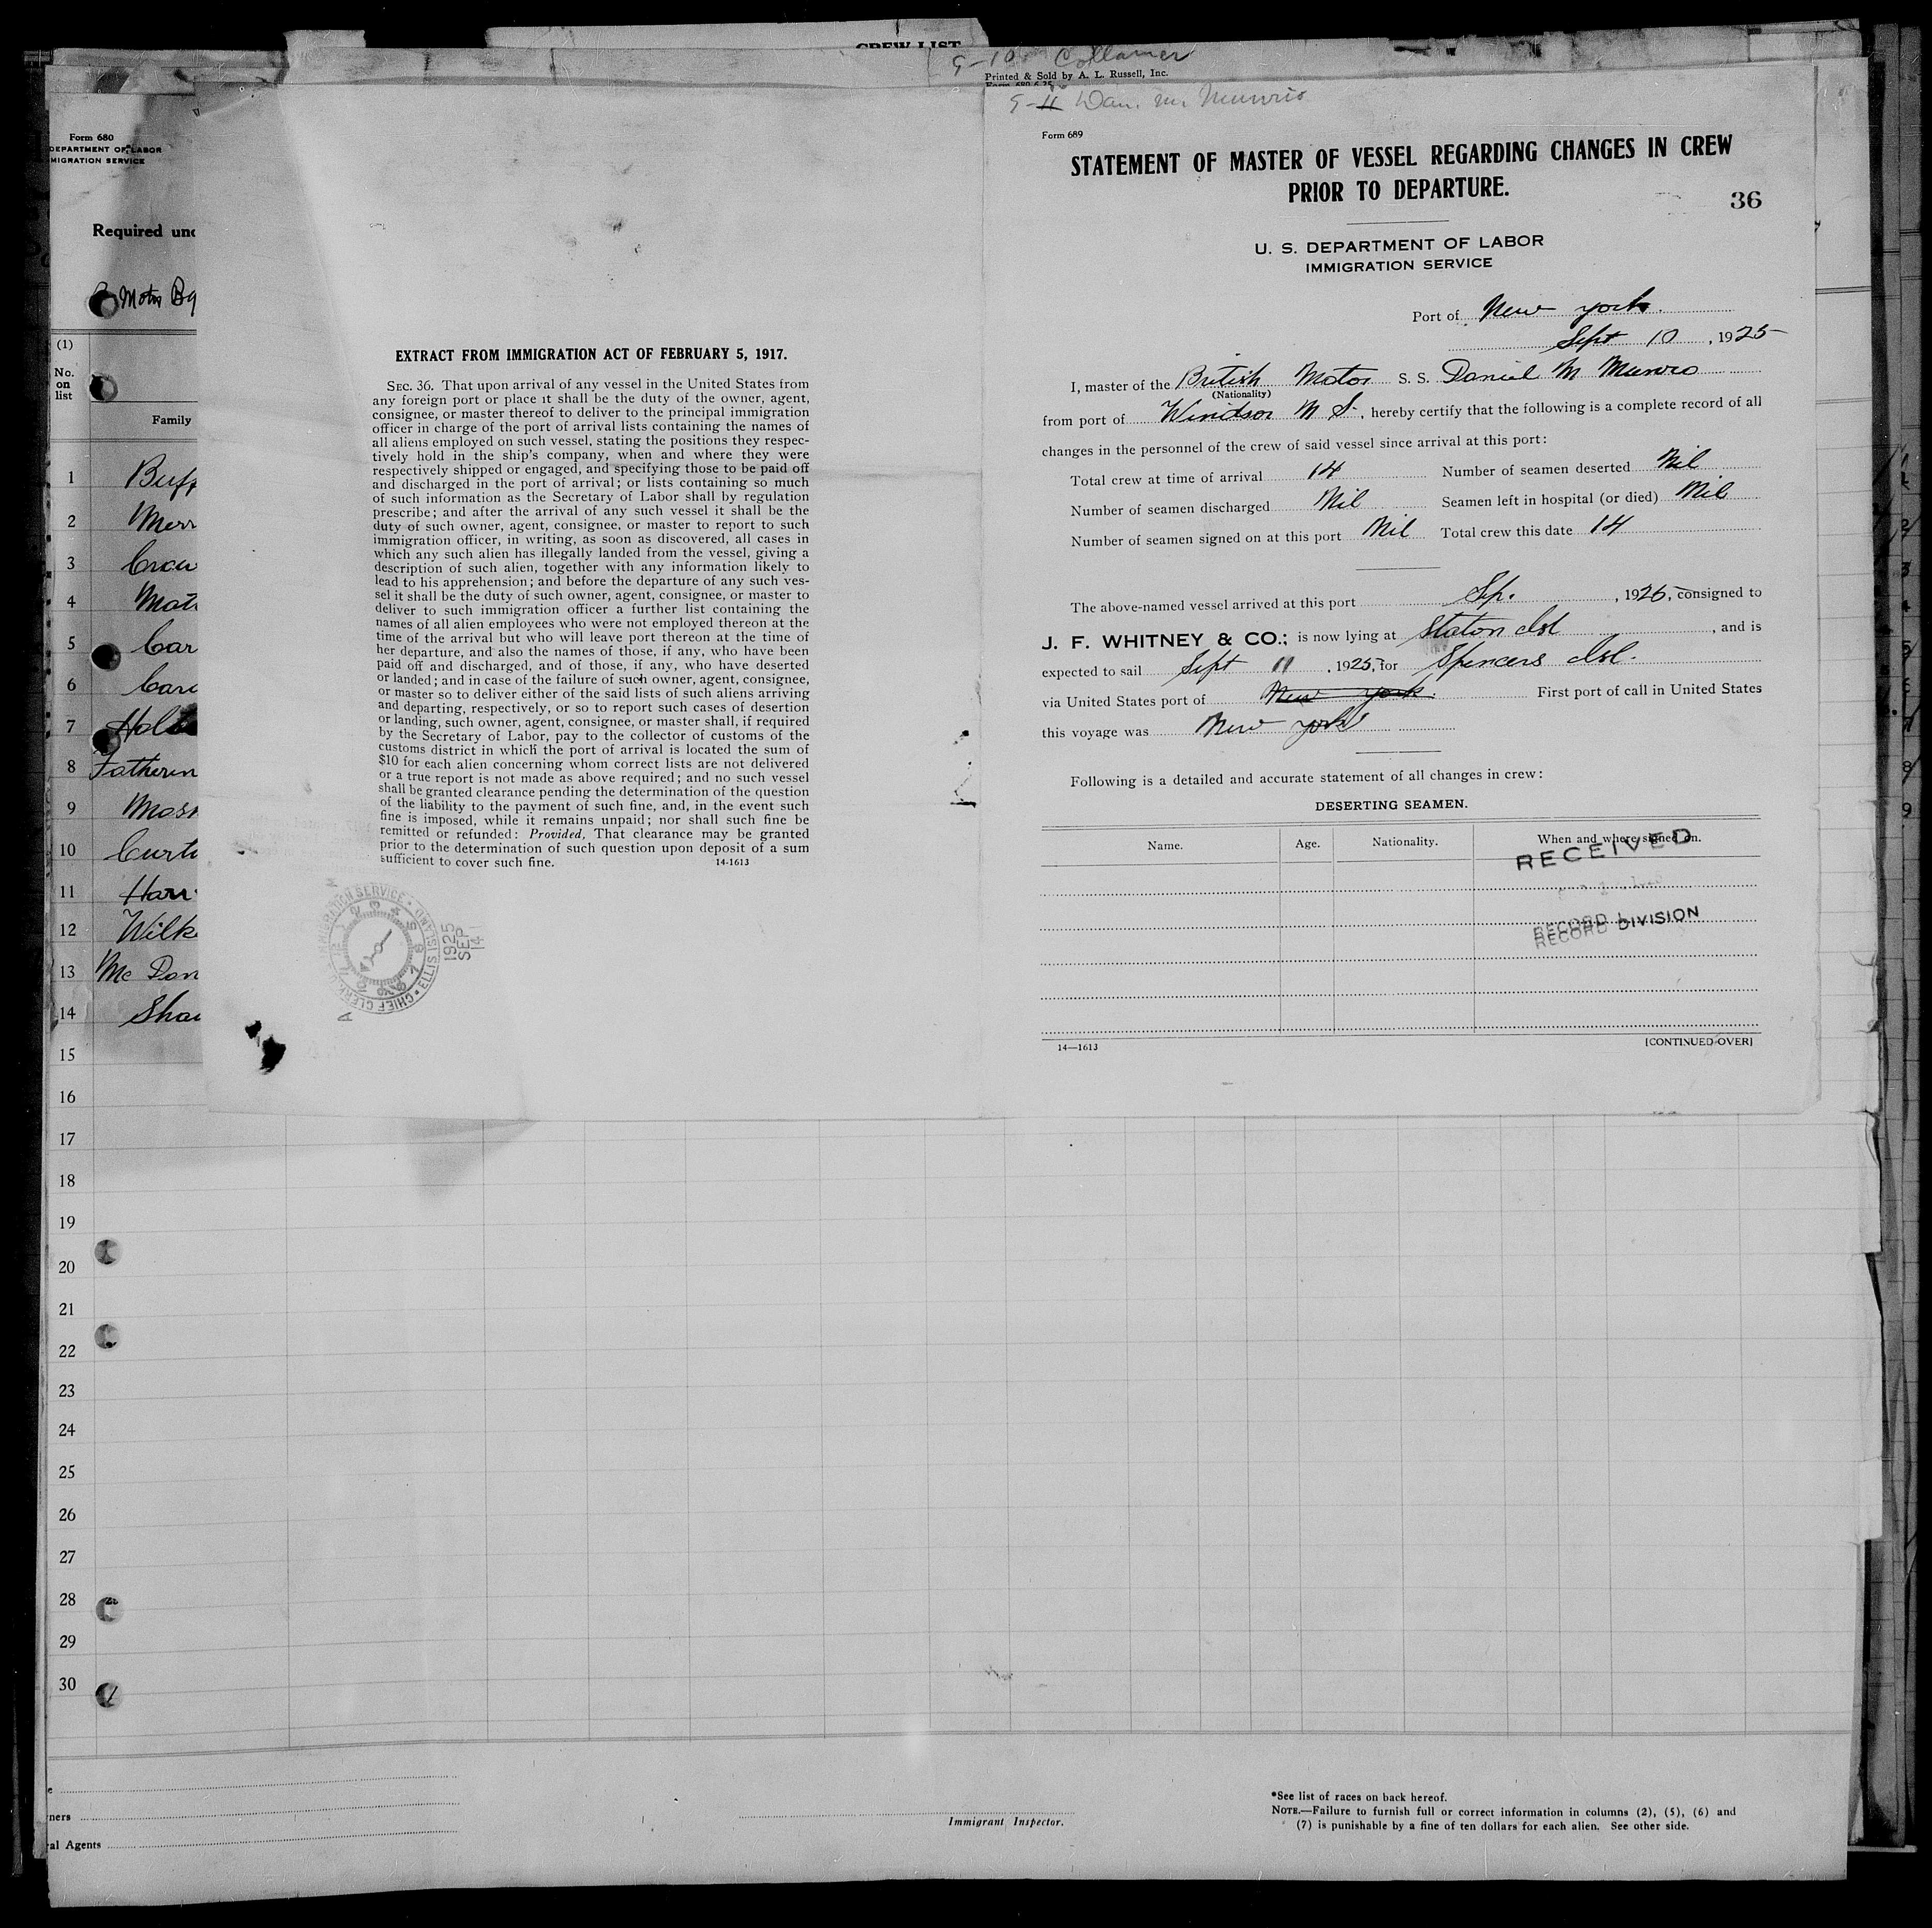 CREW LIST
9-10 Collamer
Printed & Sold by A. L. Russell, Inc.
9-11 Dan. M. Munro
Form 680
DEPARTMENT OF LABOR
MIGRATION SERVICE
Required und
Motor Bq
(1)
No.
on
list
Family
1 Buff
2 Merr
3 Craw
4 Mat
5 Car
6 Card
7 Holt
8 Fatherin
9 Mosh
10 Curti
11 Harr
12 Wilk
13 Mc Don
14 Shaw
15
16
17
18
19
20
21
22
23
24
25
26
27
28
29
30
EXTRACT FROM IMMIGRATION ACT OF FEBRUARY 5, 1917.
SEC. 36. That upon arrival of any vessel in the United States from
any foreign port or place it shall be the duty of the owner, agent,
consignee, or master thereof to deliver to the principal immigration
officer in charge of the port of arrival lists containing the names of
all aliens employed on such vessel, stating the positions they respec-
tively hold in the ship's company, when and where they were
respectively shipped or engaged, and specifying those to be paid off
and discharged in the port of arrival; or lists containing so much
of such information as the Secretary of Labor shall by regulation
prescribe; and after the arrival of any such vessel it shall be the
duty of such owner, agent, consignee, or master to report to such
immigration officer, in writing, as soon as discovered, all cases in
which any such alien has illegally landed from the vessel, giving a
description of such alien, together with any information likely to
lead to his apprehension; and before the departure of any such ves-
sel it shall be the duty of such owner, agent, consignee, or master to
deliver to such immigration officer a further list containing the
names of all alien employees who were not employed thereon at the
time of the arrival but who will leave port thereon at the time of
her departure, and also the names of those, if any, who have been
paid off and discharged, and of those, if any, who have deserted
or landed; and in case of the failure of such owner, agent, consignee,
or master so to deliver either of the said lists of such aliens arriving
and departing, respectively, or so to report such cases of desertion
or landing, such owner, agent, consignee, or master shall, if required
by the Secretary of Labor, pay to the collector of customs of the
customs district in which the port of arrival is located the sum of
$10 for each alien concerning whom correct lists are not delivered
or a true report is not made as above required; and no such vessel
shall be granted clearance pending the determination of the question
of the liability to the payment of such fine, and, in the event such
fine is imposed, while it remains unpaid; nor shall such fine be
remitted or refunded: Provided, That clearance may be granted
prior to the determination of such question upon deposit of a sum
sufficient to cover such fine. 14-1613
IMMIGRATION SERVICE • ELLIS ISLAND • CHIEF CLERK
1925
SEP
14
Form 689
STATEMENT OF MASTER OF VESSEL REGARDING CHANGES IN CREW
PRIOR TO DEPARTURE.
36
U. S. DEPARTMENT OF LABOR
IMMIGRATION SERVICE
Port of New York
Sept 10, 1925
I, master of the British Motor S. S. Daniel M Munro
(Nationality)
from port of Windsor N S., hereby certify that the following is a complete record of all
changes in the personnel of the crew of said vessel since arrival at this port:
Total crew at time of arrival 14 Number of seamen deserted Nil
Number of seamen discharged Nil Seamen left in hospital (or died) Nil
Number of seamen signed on at this port Nil Total crew this date 14
The above-named vessel arrived at this port Sep. , 1925, consigned to
J. F. WHITNEY & CO.; is now lying at Staton Isl , and is
expected to sail Sept 11 , 1925, for Spencers Isl.
via United States port of New York. First port of call in United States
this voyage was New York
Following is a detailed and accurate statement of all changes in crew:
DESERTING SEAMEN.
Name. Age. Nationality. When and where signed on.
RECEIVED
RECORD DIVISION
14—1613 [CONTINUED OVER]
ners
al Agents
Immigrant Inspector.
*See list of races on back hereof.
NOTE.—Failure to furnish full or correct information in columns (2), (5), (6) and
(7) is punishable by a fine of ten dollars for each alien. See other side.